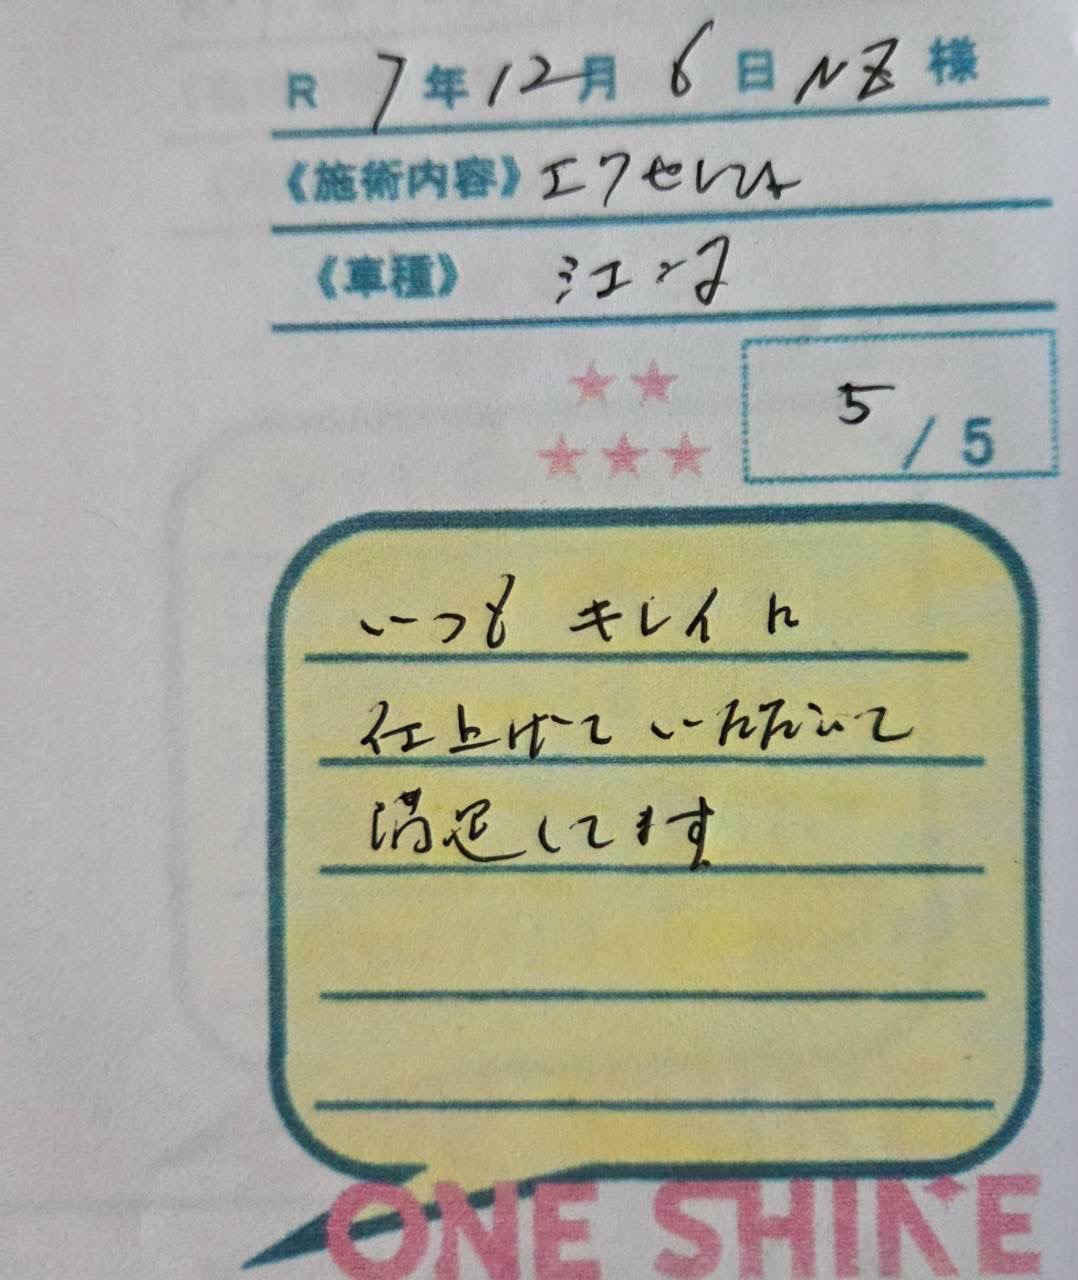 R 7年12月6日 NZ様
《施術内容》エクセレント
《車種》シエンタ
5/5
いつもキレイに
仕上げていただいて
満足してます
ONE SHINE